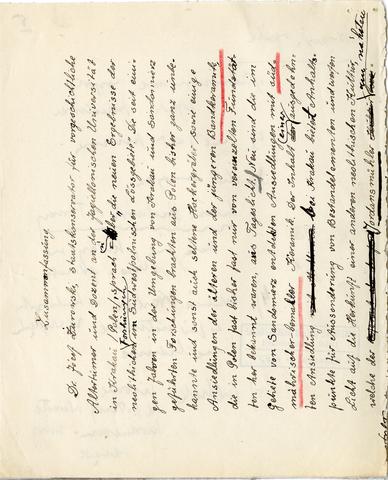 Zusammenfassung.
Dr. Josef Żurowski, Staatskonservator für vorgeschichtliche
Altertümer und Dozent an der Jagellonischen Universität
in Krakau (Polen) sprach über die neuen Ergebnisse der
neolithischen Forschungen im Südwestpolnischen Lössgebiete. Die seit eini-
gen Jahren in der Umgebung von Krakau und Sandomierz
geführten Forschungen brachten aus Polen bisher ganz unbe-
kannte und sonst auch seltene Hockergräber sowie einige
Ansiedlungen der älteren und der jüngeren Bandkeramik,
die in Polen fast bisher fast nur von vereinzelten Fundstät-
ten her bekannt waren, ans Tageslicht. Neu sind die im
Gebiete von Sandomierz entdekten Ansiedlungen mit süd-
mährischer bemalter Keramik. Der Inhalt einer ausgedehn-
ten Ansiedlung bei Krakau bietet Anhalts-
punkte für Aussonderung von Bestandelementen und werfen
Licht auf die Herkunft einer anderen neolithischen Kultur,
welche der Jordansmühler